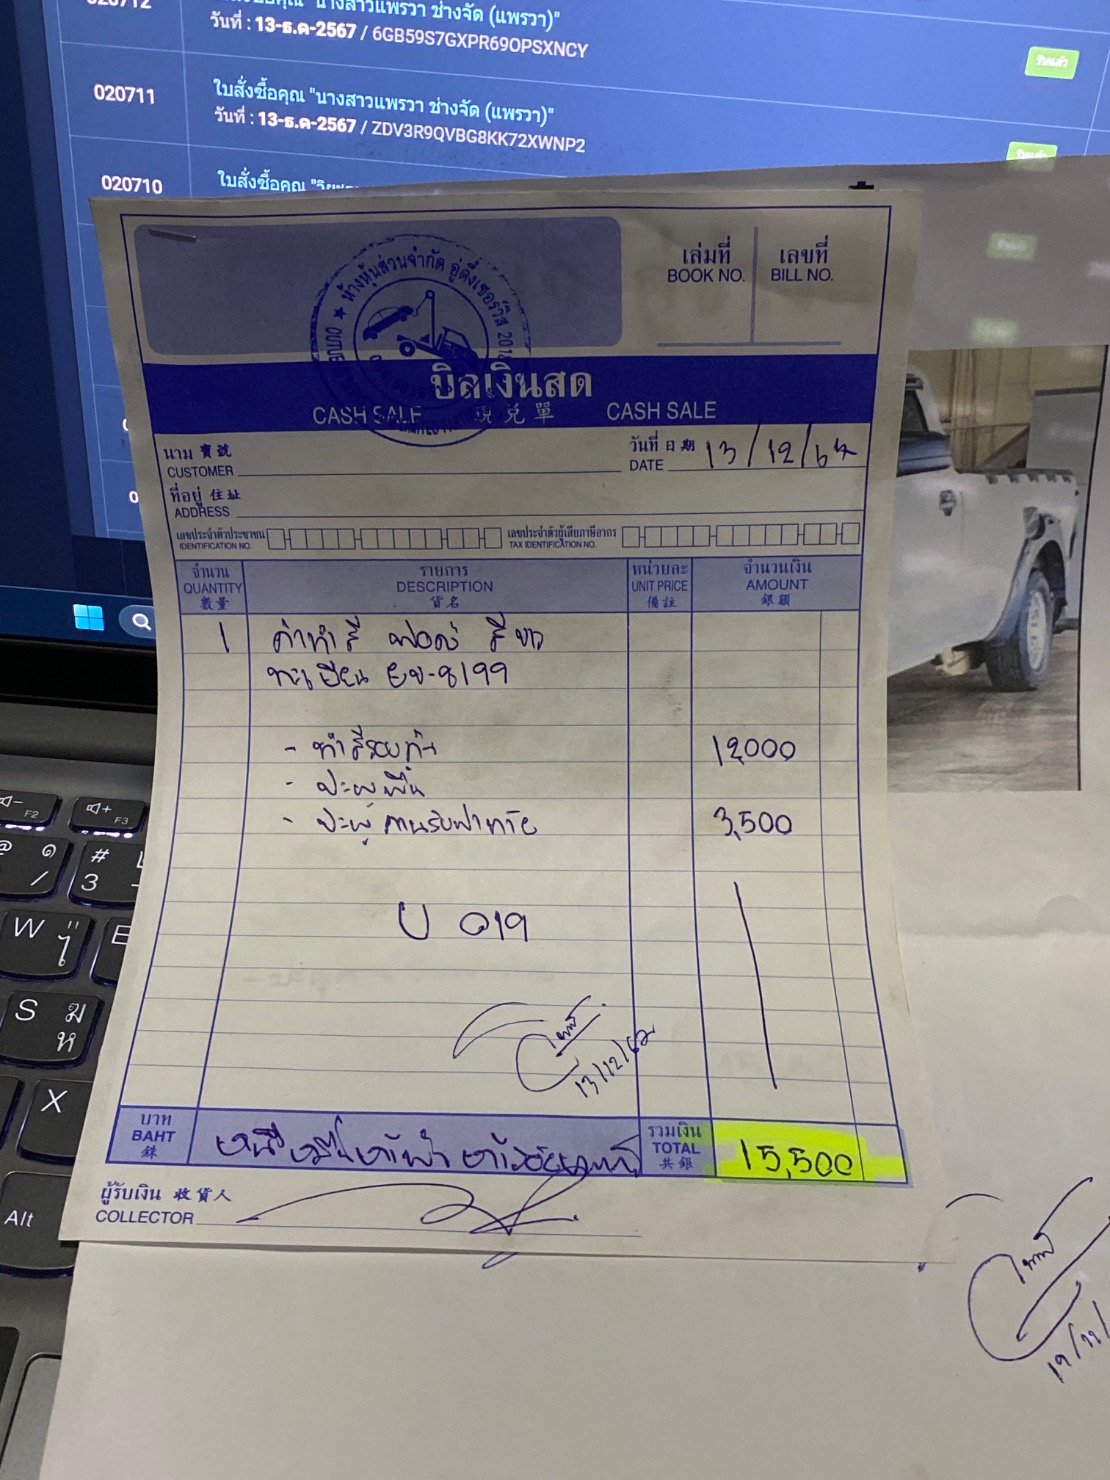 020712
"นางสาวแพรวา ช่างจัด (แพรวา)"
วันที่ : 13-ธ.ค-2567 / 6GB59S7GXPR69OPSXNCY
รับแล้ว
020711
ใบสั่งซื้อคุณ "นางสาวแพรวา ช่างจัด (แพรวา)"
วันที่ : 13-ธ.ค-2567 / ZDV3R9QVBG8KK72XWNP2
รับแล้ว
020710
ใบสั่งซื้อคุณ
ห้างหุ้นส่วนจำกัด อู่ตึ๋งเซอร์วิส
เล่มที่ เลขที่
BOOK NO. BILL NO.
บิลเงินสด
CASH SALE 現兑單 CASH SALE
นาม 寳號
CUSTOMER
วันที่ 日期
DATE 13/12/67
ที่อยู่ 住址
ADDRESS
เลขประจำตัวประชาชน
IDENTIFICATION NO.
เลขประจำตัวผู้เสียภาษีอากร
TAX IDENTIFICATION NO.
จำนวน รายการ หน่วยละ จำนวนเงิน
QUANTITY DESCRIPTION UNIT PRICE AMOUNT
數量 貨名 備註 銀額
1 ค่าทำสี ฟอร์ด สีขาว
ทะเบียน 8199
- ทำสีรอบคัน 12,000
- ปะผุพื้น
- ปะผุ 3,500
บ 019
13/12/67
บาท
BAHT
銖
รวมเงิน
TOTAL
共銀
15,500
ผู้รับเงิน 收貨人
COLLECTOR
F2
F3
@
/
#
3
W
E
S
ฆ
ห
X
Alt